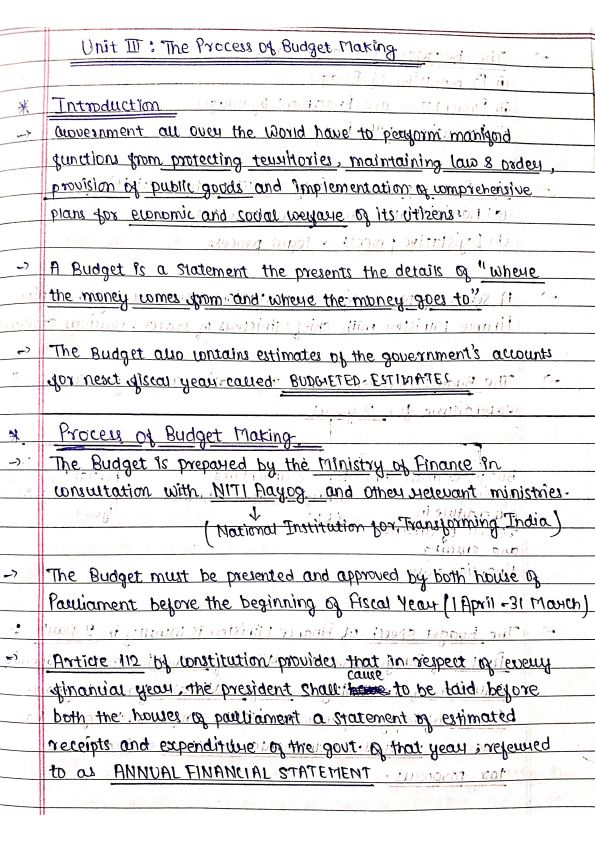 Unit III : The Process of Budget Making
* Introduction
→ Government all over the World have to perform manifold
functions from protecting territories, maintaining law & order,
provision of public goods and implementation of comprehensive
plans for economic and social welfare of its citizens.
→ A Budget is a statement the presents the details of "where
the money comes from and where the money goes to"
→ The Budget also contains estimates of the government's accounts
for next fiscal year called BUDGETED ESTIMATES
* Process of Budget Making
→ The Budget is prepared by the Ministry of Finance in
consultation with NITI Aayog and other relevant ministries.
↓
(National Institution for Transforming India)
→ The Budget must be presented and approved by both house of
Parliament before the beginning of Fiscal Year (1 April - 31 March)
→ Article 112 of constitution provides that in respect of every
cause
financial year, the president shall to be laid before
both the houses of parliament a statement of estimated
receipts and expenditure of the govt. of that year, referred
to as ANNUAL FINANCIAL STATEMENT